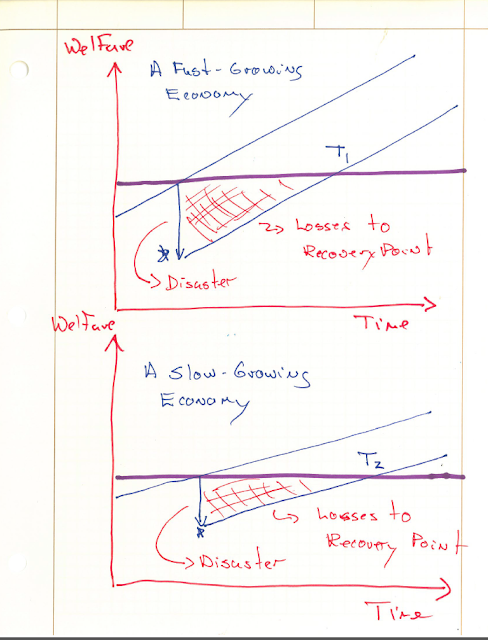 Welfare
A Fast-Growing
Economy
T1
Losses to
Recovery Point
Disaster
Time
Welfare
A Slow-Growing
Economy
T2
Losses to
Recovery Point
Disaster
Time